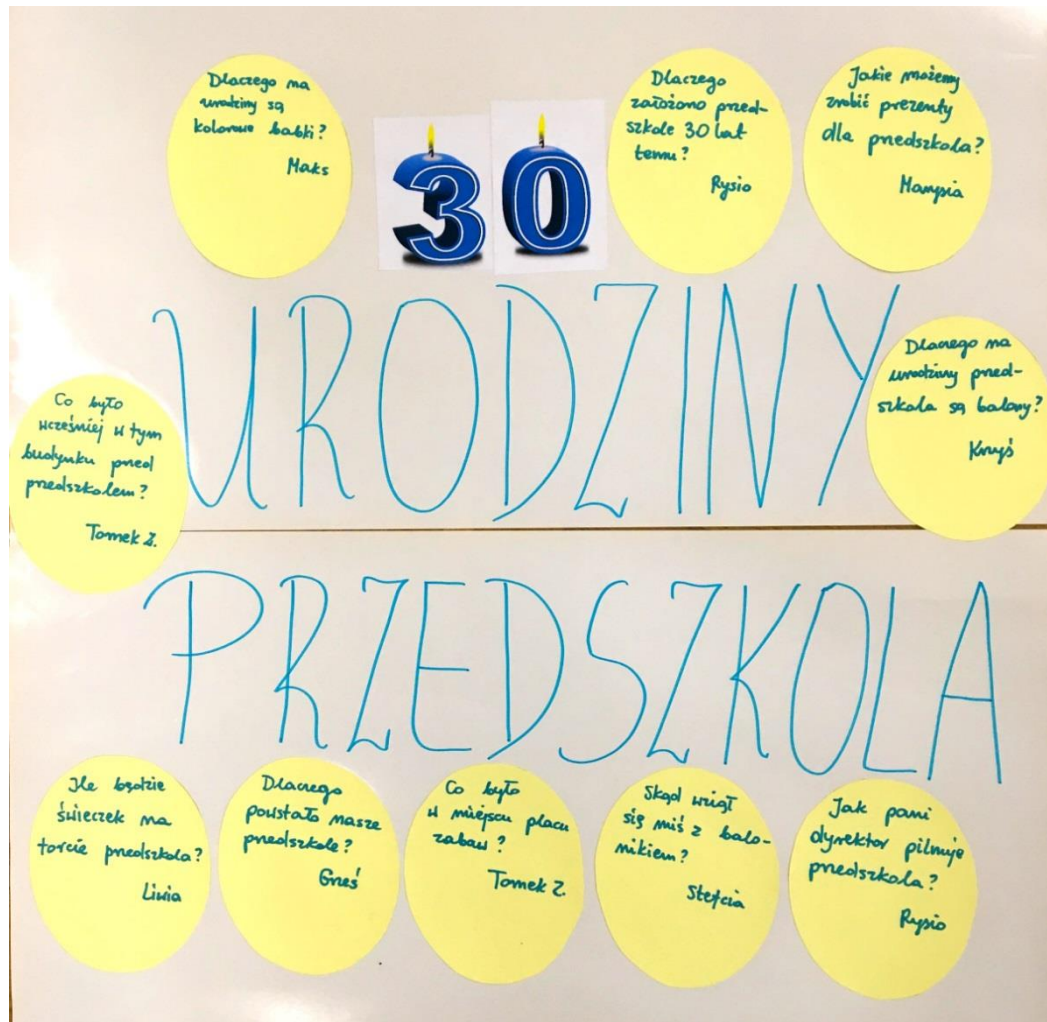 Dlaczego na
urodziny są
kolorowe babki?
Maks
30
Dlaczego
założono przed-
szkole 30 lat
temu?
Rysio
Jakie możemy
zrobić prezenty
dla przedszkola?
Marysia
URODZINY
Dlaczego na
urodziny przed-
szkola są balony?
Krzyś
Co było
wcześniej w tym
budynku przed
przedszkolem?
Tomek Z.
PRZEDSZKOLA
Ile będzie
świeczek na
torcie przedszkola?
Liwia
Dlaczego
powstało nasze
przedszkole?
Grześ
Co było
w miejscu placu
zabaw?
Tomek Z.
Skąd wziął
się miś z balo-
nikiem?
Stefcia
Jak pani
dyrektor pilnuje
przedszkola?
Rysio